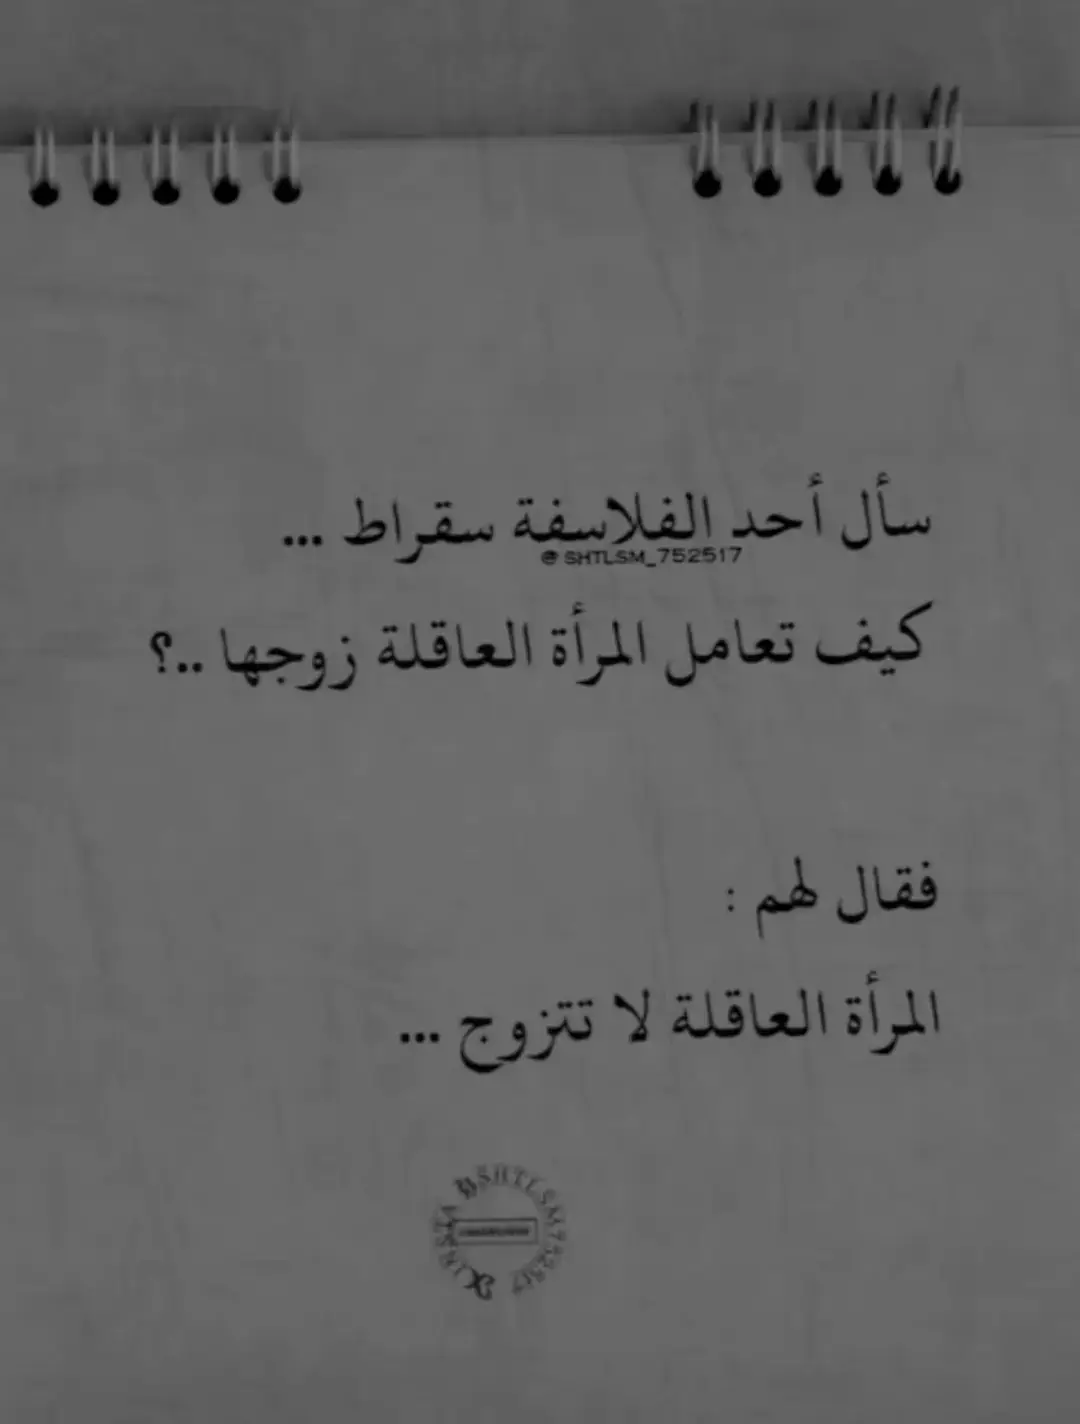 سأل أحد الفلاسفة سقراط ...
@SHTLSM_752517
كيف تعامل المرأة العاقلة زوجها ..؟
فقال لهم :
المرأة العاقلة لا تتزوج ...
SHTLSM752517
INSTA